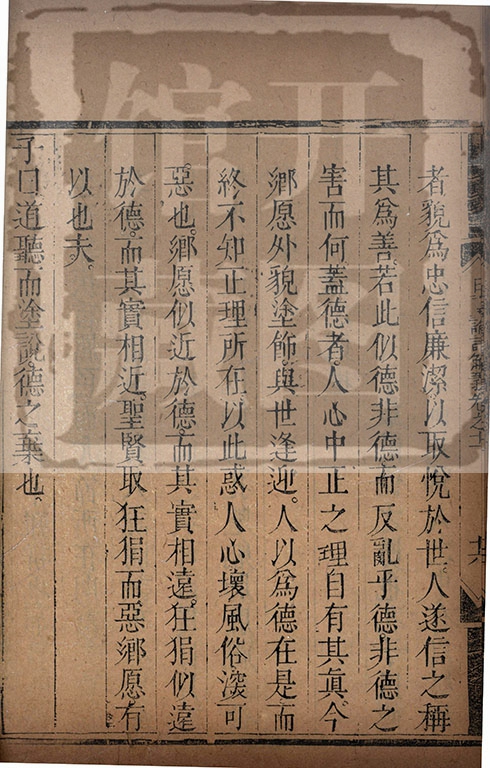 者貌爲忠信廉潔以取悅於世人遂信之稱
其爲善若此似德非德而反亂乎德非德之
害而何蓋德者人心中正之理自有其眞今
鄉愿外貌塗飾與世逢迎人以爲德在是而
終不知正理所在以此惑人心壞風俗深可
惡也鄉愿似近於德而其實相遠狂狷似遠
於德而其實相近聖賢取狂狷而惡鄉愿有
以也夫
子曰道聽而塗說德之棄也